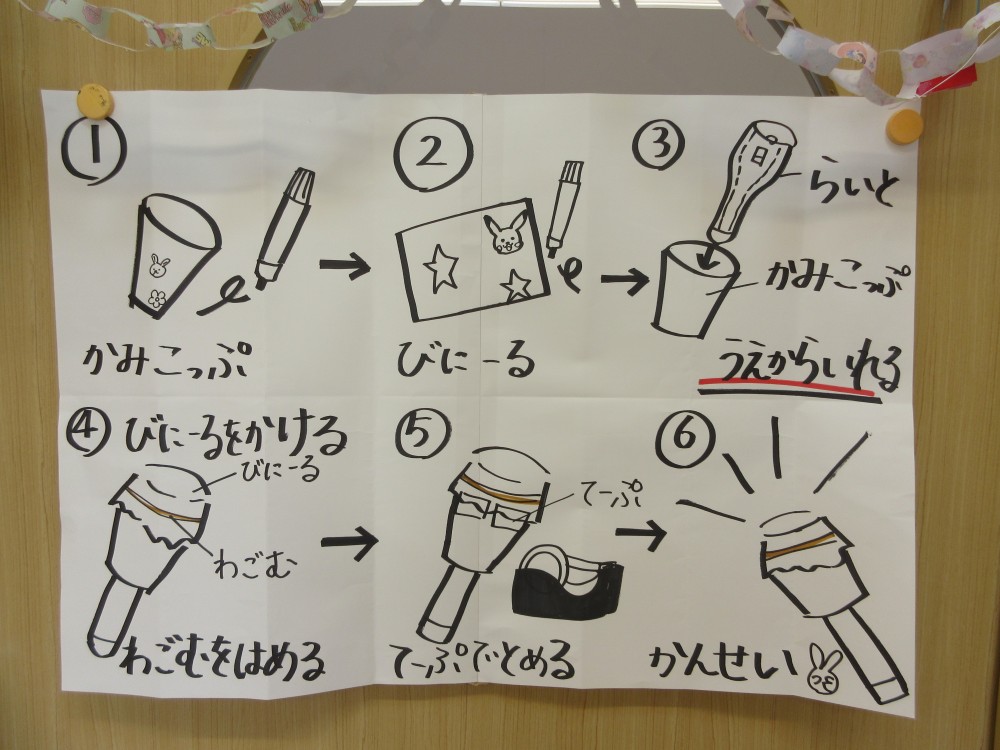 ①
かみこっぷ
②
びにーる
③
らいと
かみこっぷ
うえからいれる
④ びにーるをかける
びにーる
わごむ
わごむをはめる
⑤
てーぷ
てーぷでとめる
⑥
かんせい